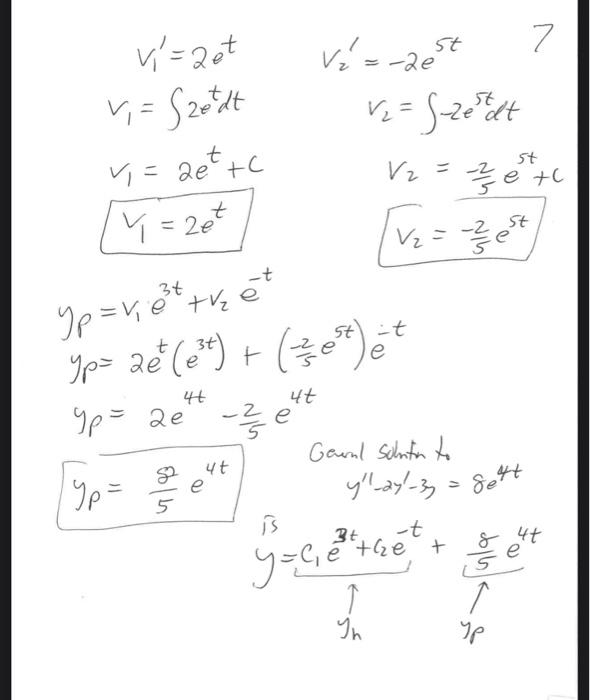 7
v₁' = 2e^t
v₁ = ∫2e^t dt
v₁ = 2e^t + C
v₁ = 2e^t
v₂' = -2e^{5t}
v₂ = ∫-2e^{5t} dt
v₂ = -2/5 e^{5t} + C
v₂ = -2/5 e^{5t}
yp = v₁ e^{3t} + v₂ e^{-t}
yp = 2e^t (e^{3t}) + (-2/5 e^{5t}) e^{-t}
yp = 2e^{4t} - 2/5 e^{4t}
yp = 8/5 e^{4t}
General solution to
y'' - 2y' - 3y = 8e^{4t}
is
y = C₁e^{3t} + C₂e^{-t} + 8/5 e^{4t}
↑ ↑
yh yp